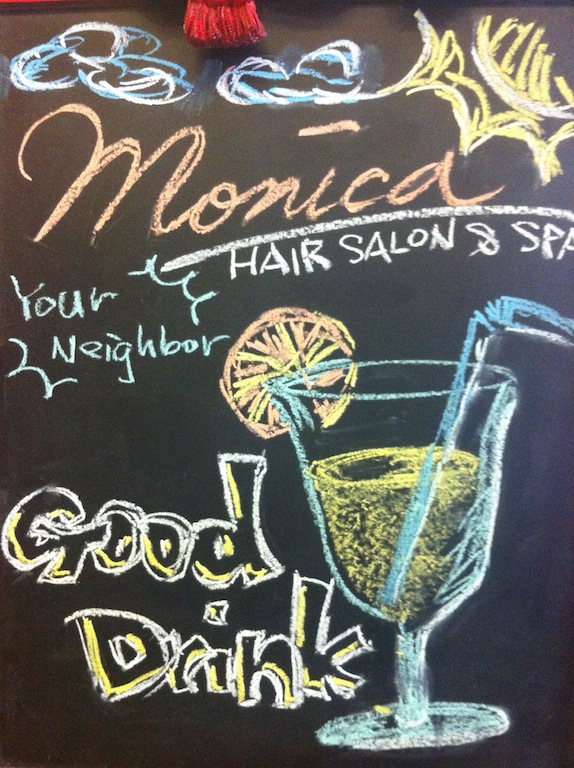 Monica
HAIR SALON & SPA
Your
Neighbor
Good
Drink